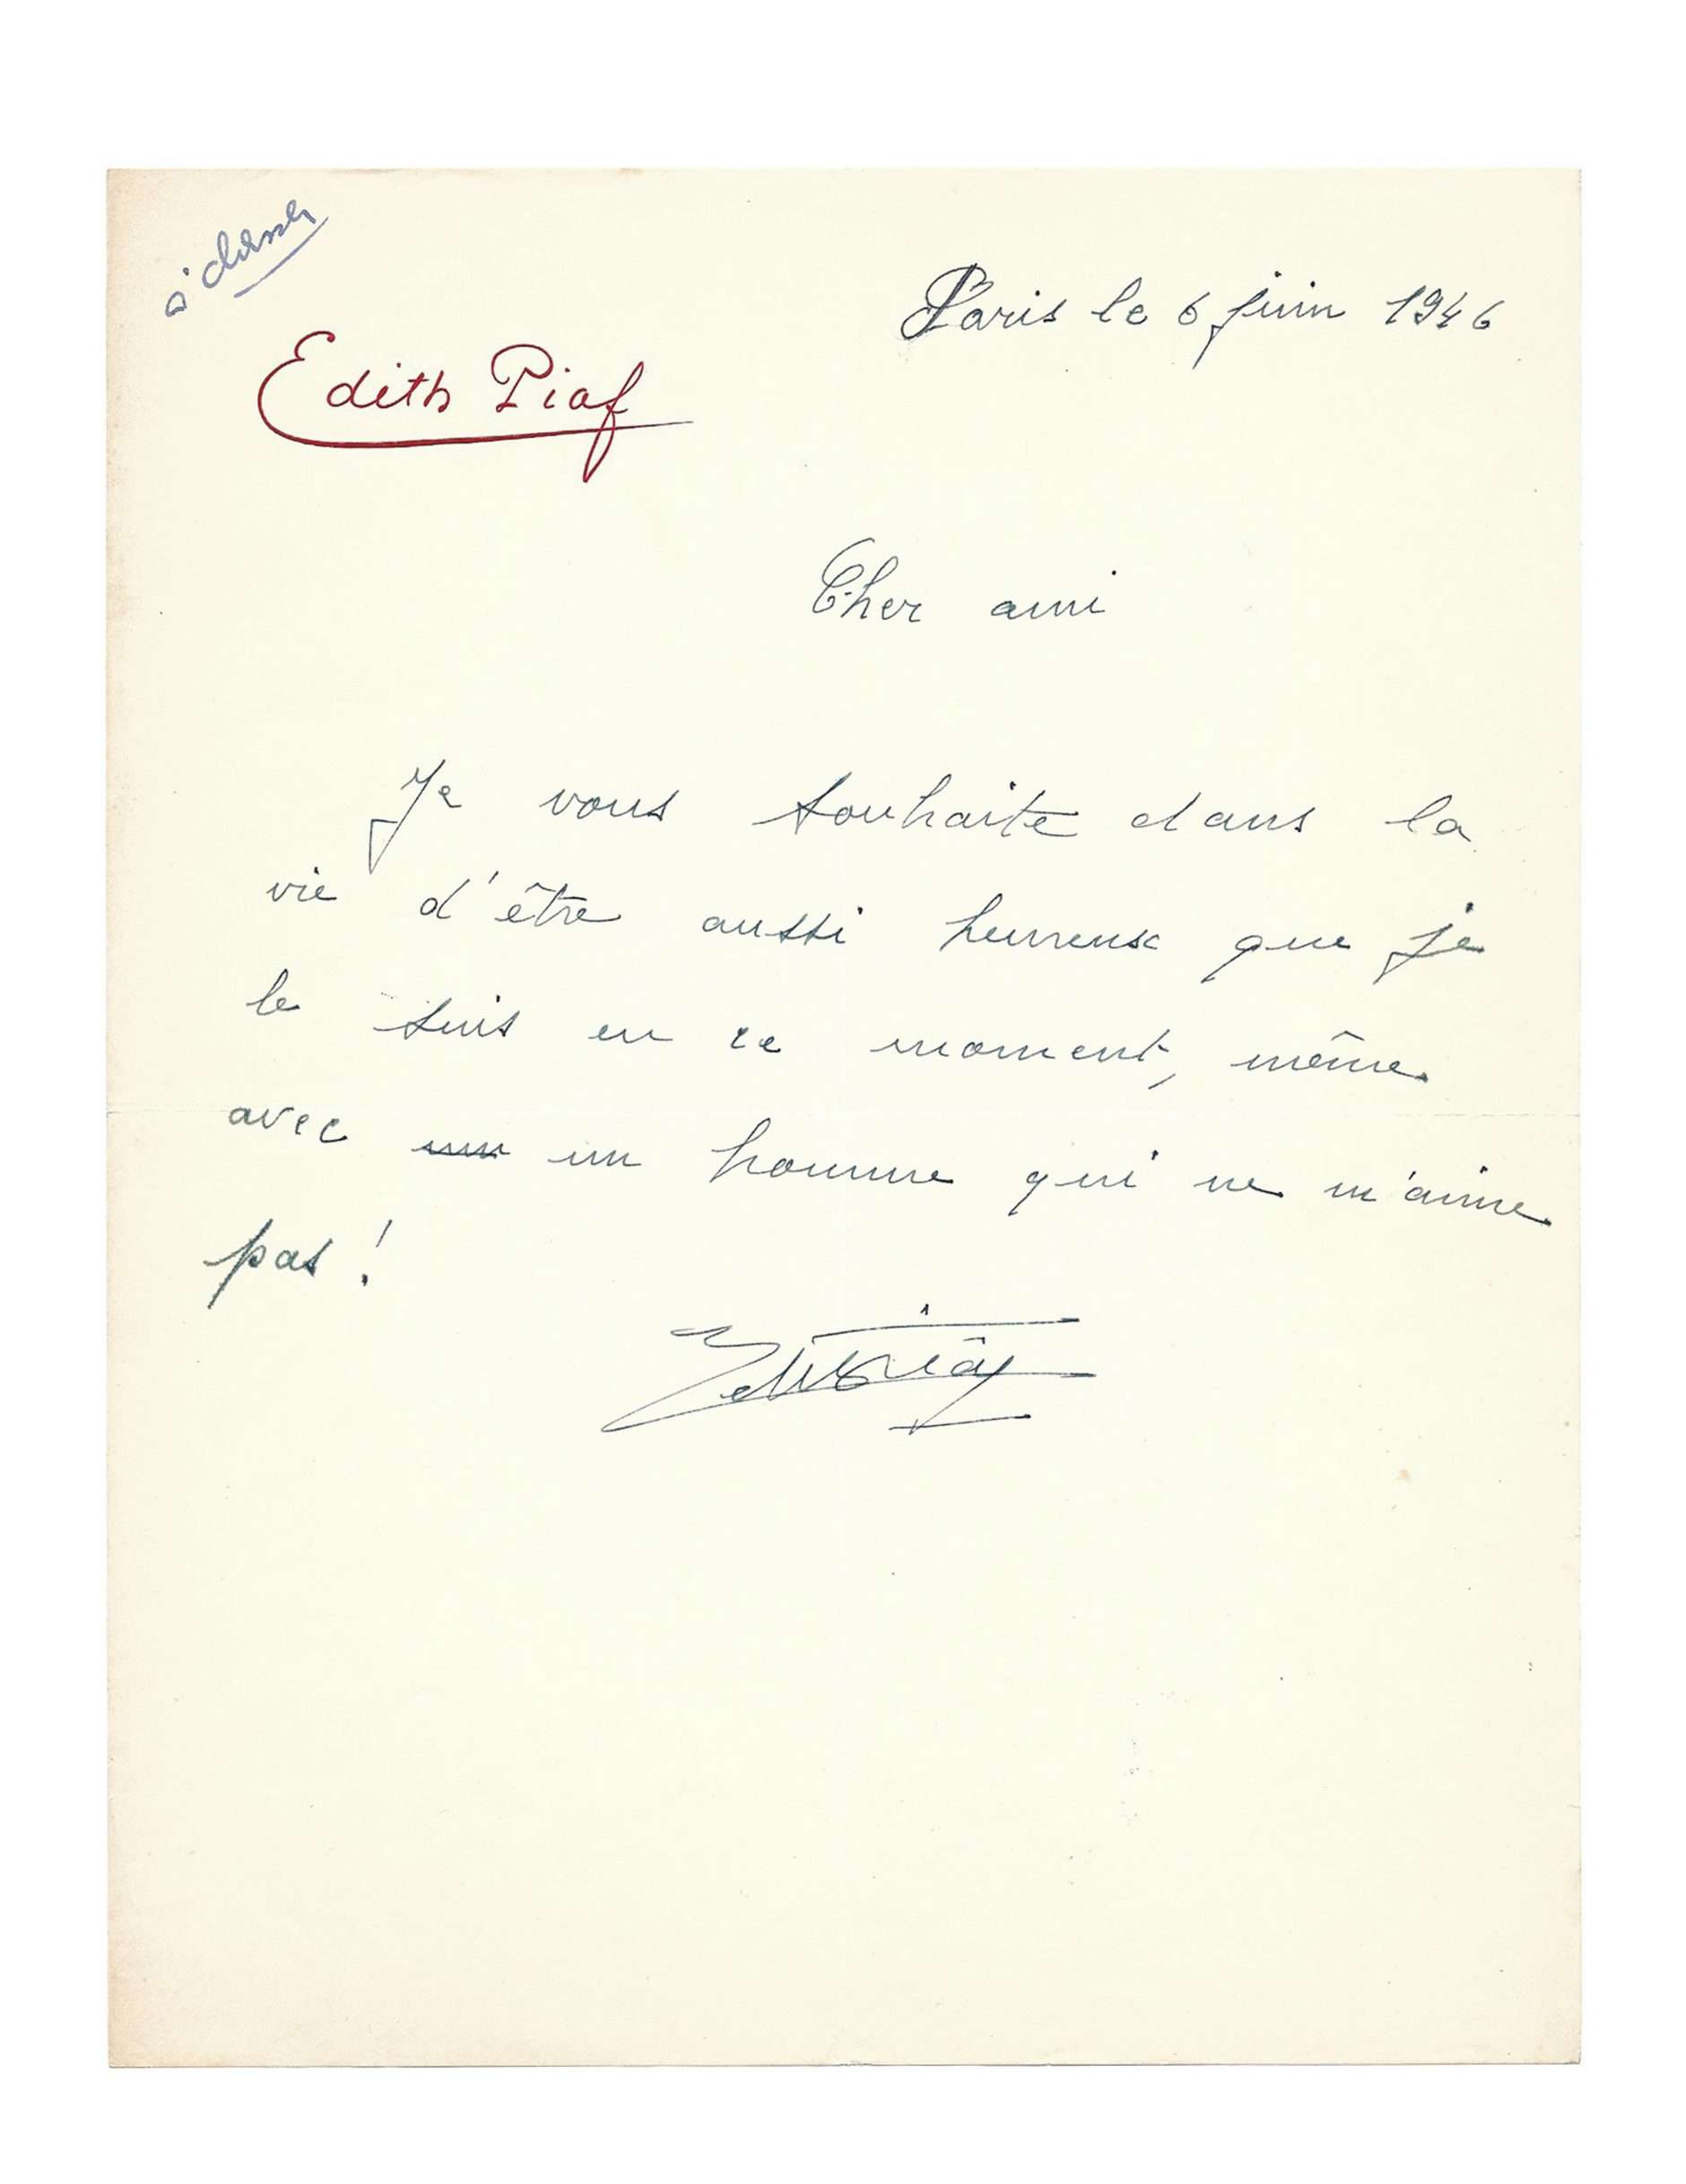 à classer
Paris le 6 juin 1946
Edith Piaf
Cher ami
Je vous souhaite dans la
vie d'être aussi heureux que je
le suis en ce moment, même
avec un homme qui ne m'aime
pas !
Edith Piaf